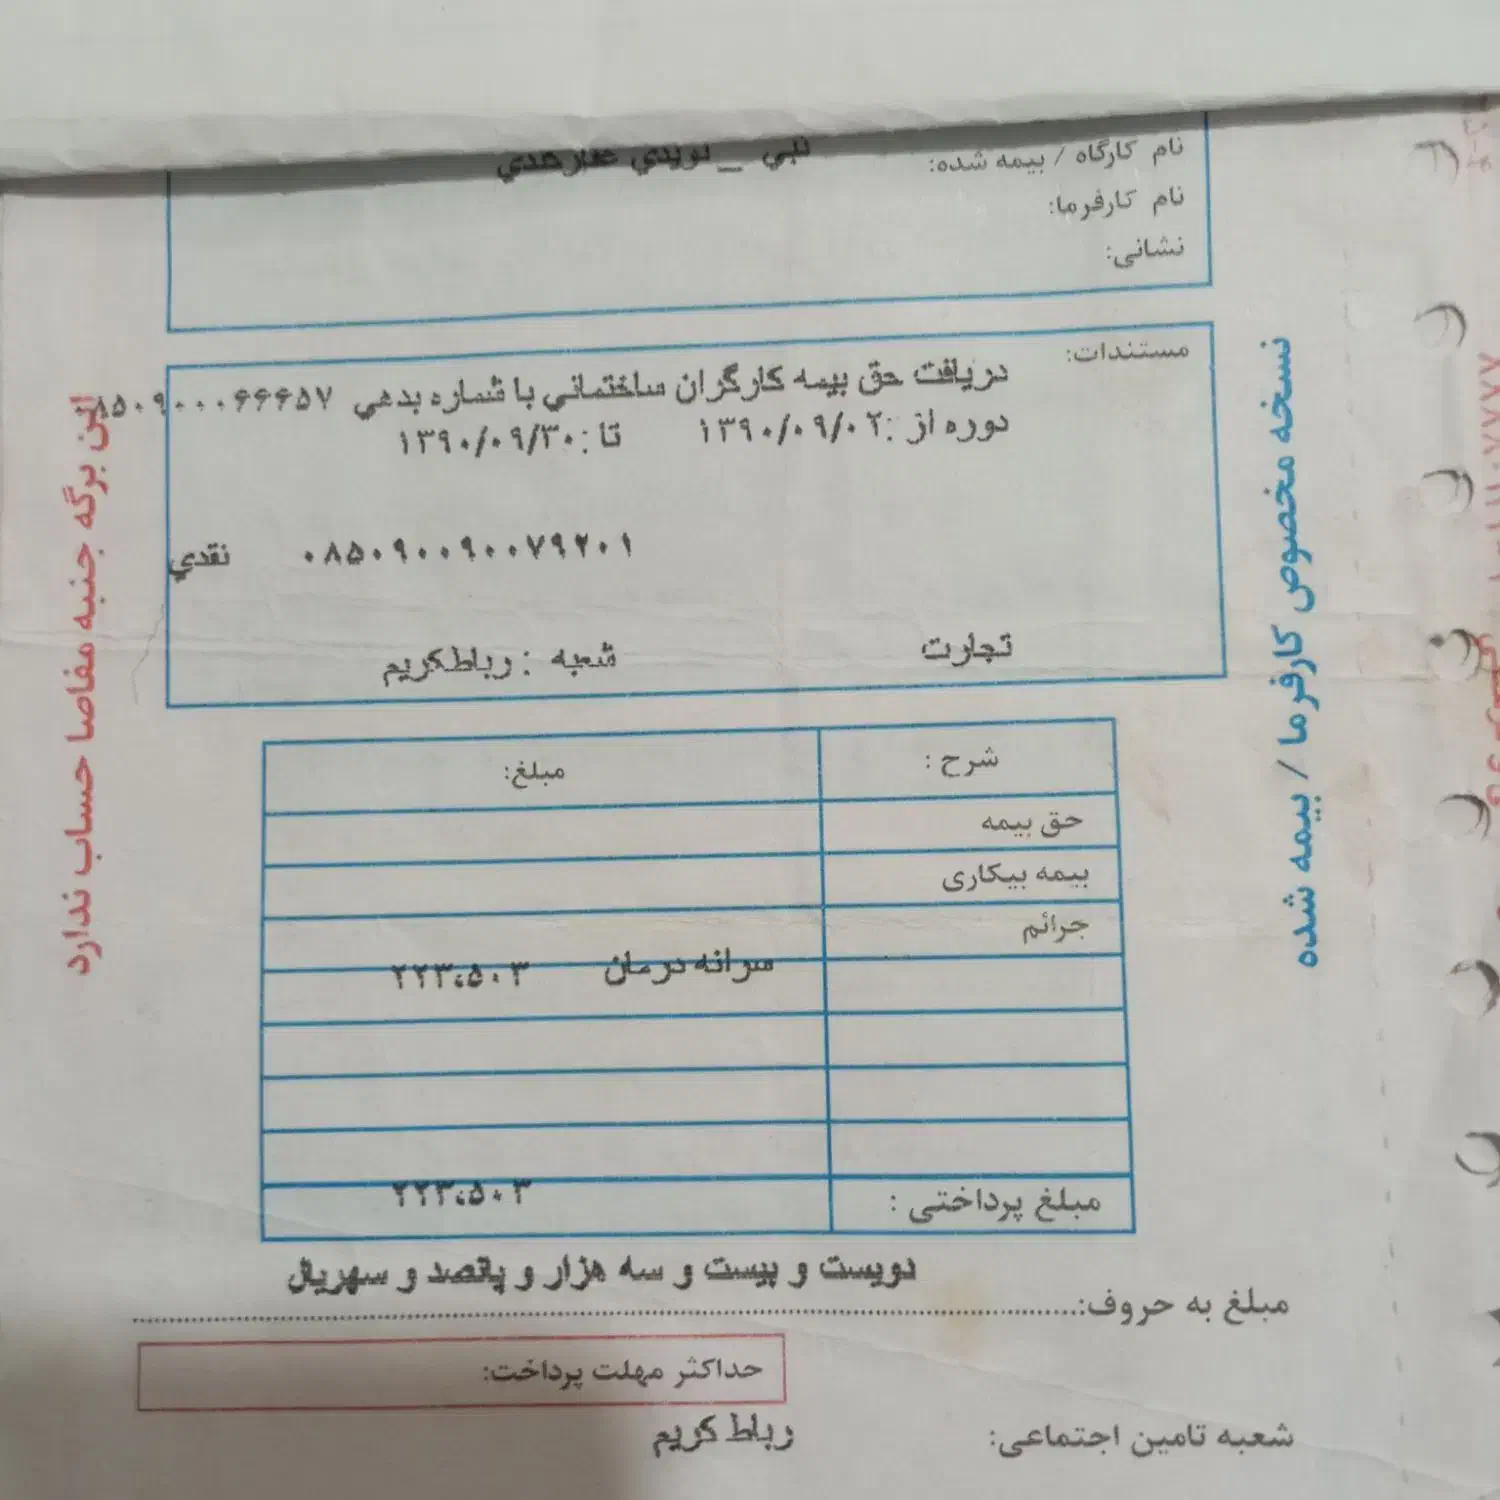 نام کارگاه / بیمه شده: نبي _ نويدي
نام کارفرما:
نشانی:
مستندات:
دريافت حق بيمه کارگران ساختماني با شماره بدهي ۸۵۰۹۰۰۰۶۶۶۵۷
دوره از :۱۳۹۰/۰۹/۰۲ تا :۱۳۹۰/۰۹/۳۰
۰۸۵۰۹۰۰۹۰۰۷۹۲۰۱ نقدي
تجارت شعبه : رباطکريم
شرح : مبلغ:
حق بیمه
بیمه بیکاری
جرائم
سرانه درمان ۲۲۳،۵۰۳
مبلغ پرداختی : ۲۲۳،۵۰۳
دويست و بيست و سه هزار و پانصد و سهريال
مبلغ به حروف:
حداکثر مهلت پرداخت:
شعبه تامین اجتماعی: رباط کريم
نسخه مخصوص کارفرما / بیمه شده
این برگه جنبه مفاصا حساب ندارد